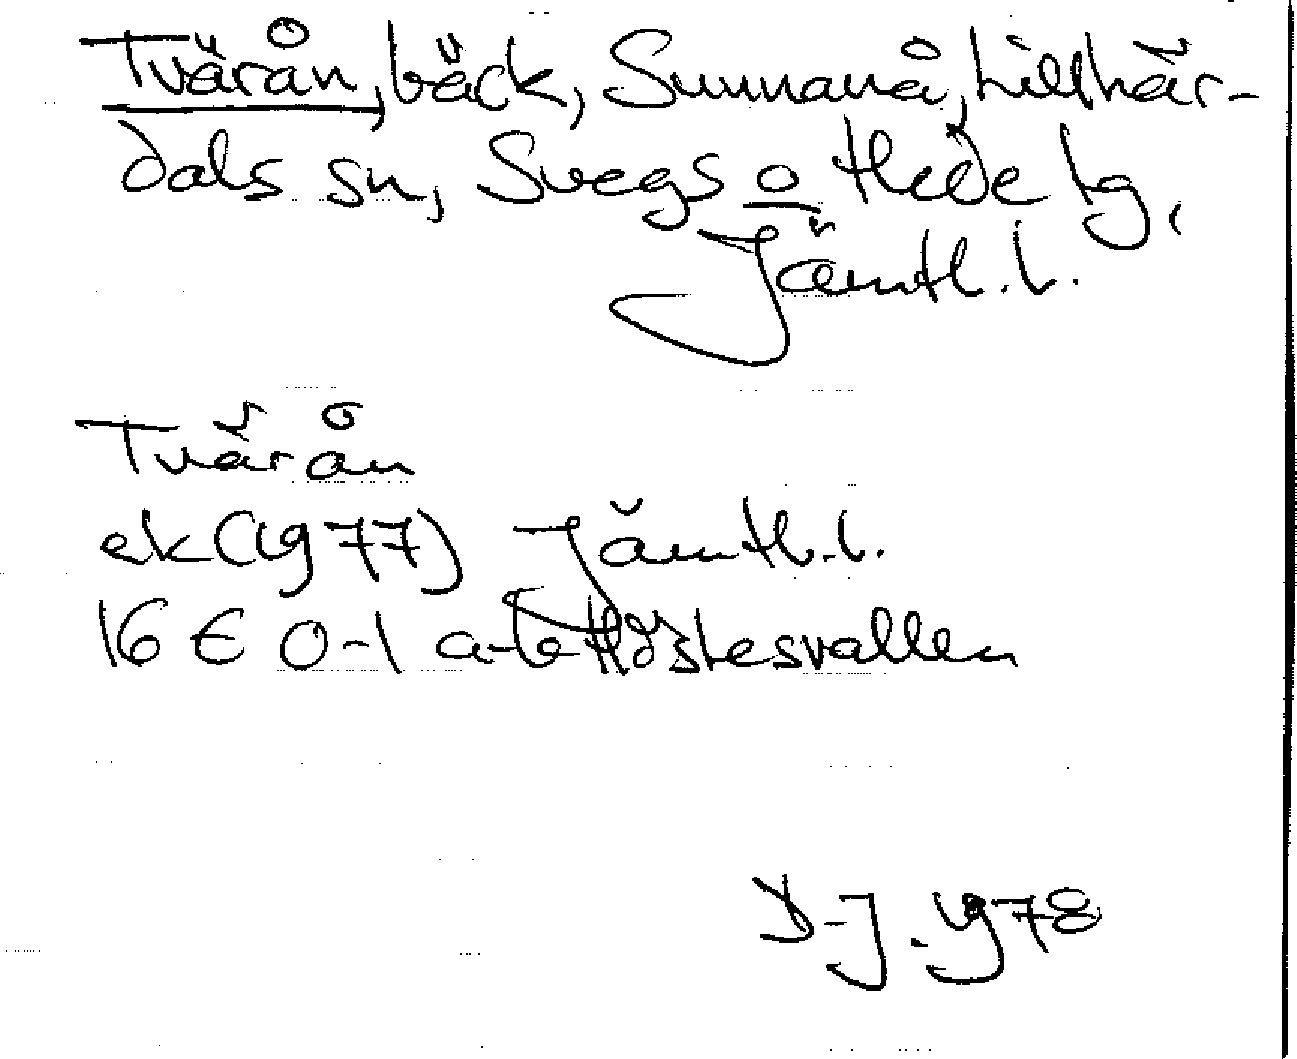 Tvärån, bäck, Sunnanå, Lillhär-
dals sn, Svegs o Hede tg,
Jämtl. l.
Tvärån
ek (1977) Jämtl. l.
16 E 0-1 a-b
D-J. 1978